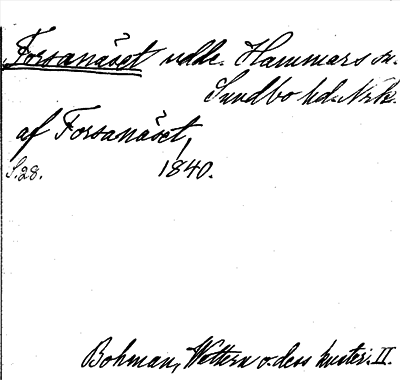 Forsanäset udde. Hammars sn.
Sundbo hd. Nrk.
af Forsanäset,
S.28. 1840.
Bohman, Wettern o. dess kuster. II.